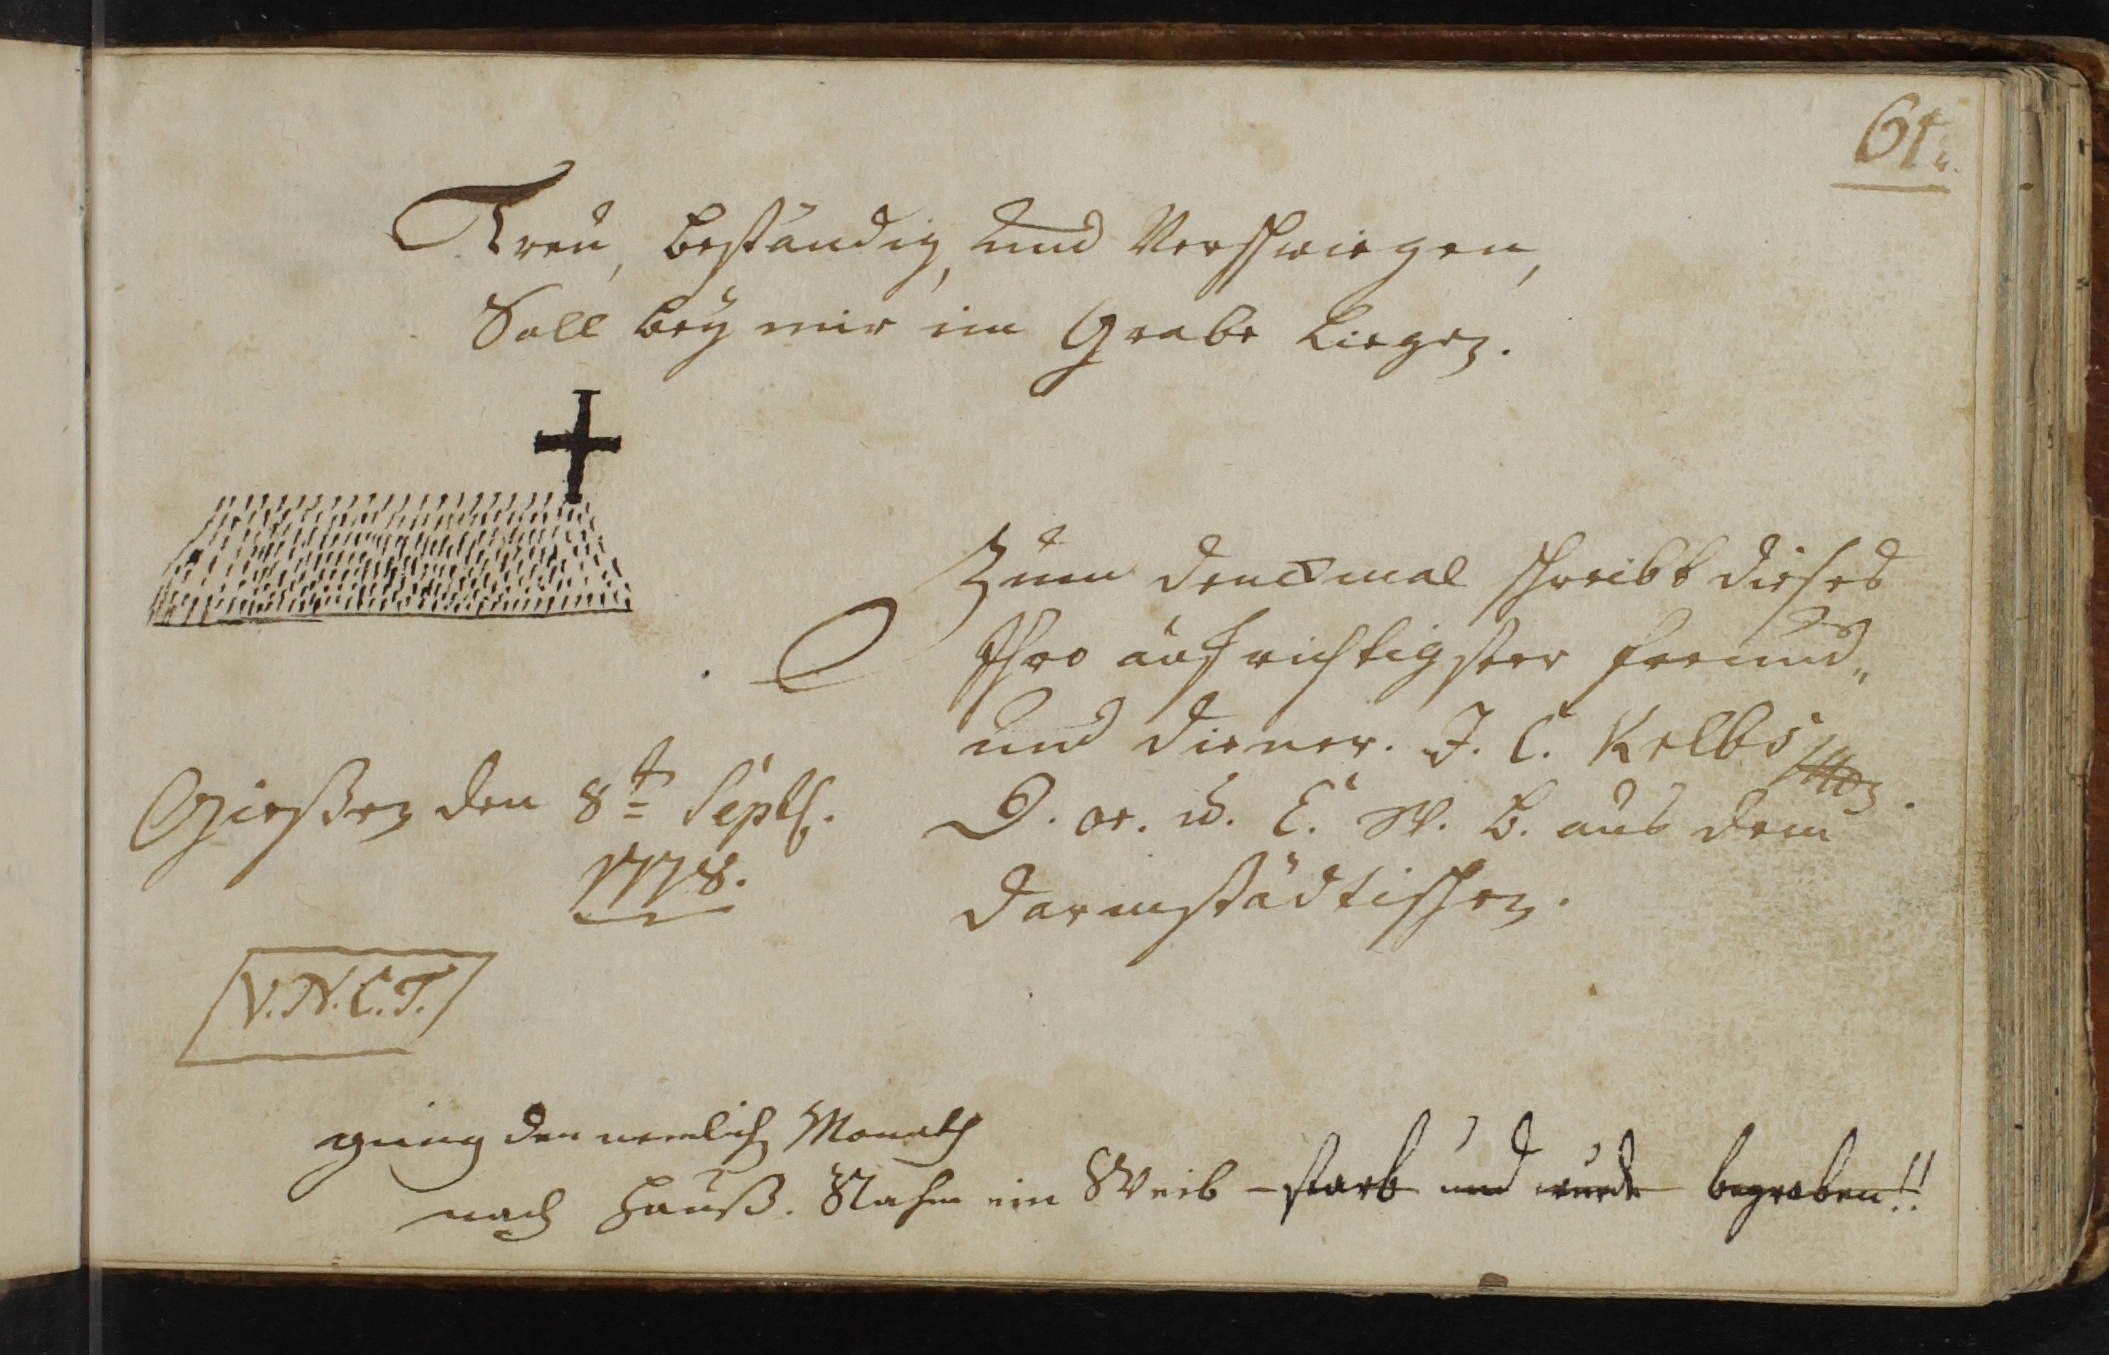 61.
Treu, beständig, und Verschwiegen,
Soll bey mir im Grabe Liegen.
Zum denckmal schreibt dieses
Ihro aufrichtigster freund,,
und diener. J. C. Kelbs
Gießen den 8t Septbr.
1778.
D. G. W. C. W. B. aus dem
darmstädtischen.
V.N.C.T.
ging den nemlich Monath
nach Hauß. Nahm ein Weib - starb und wurde begraben!!